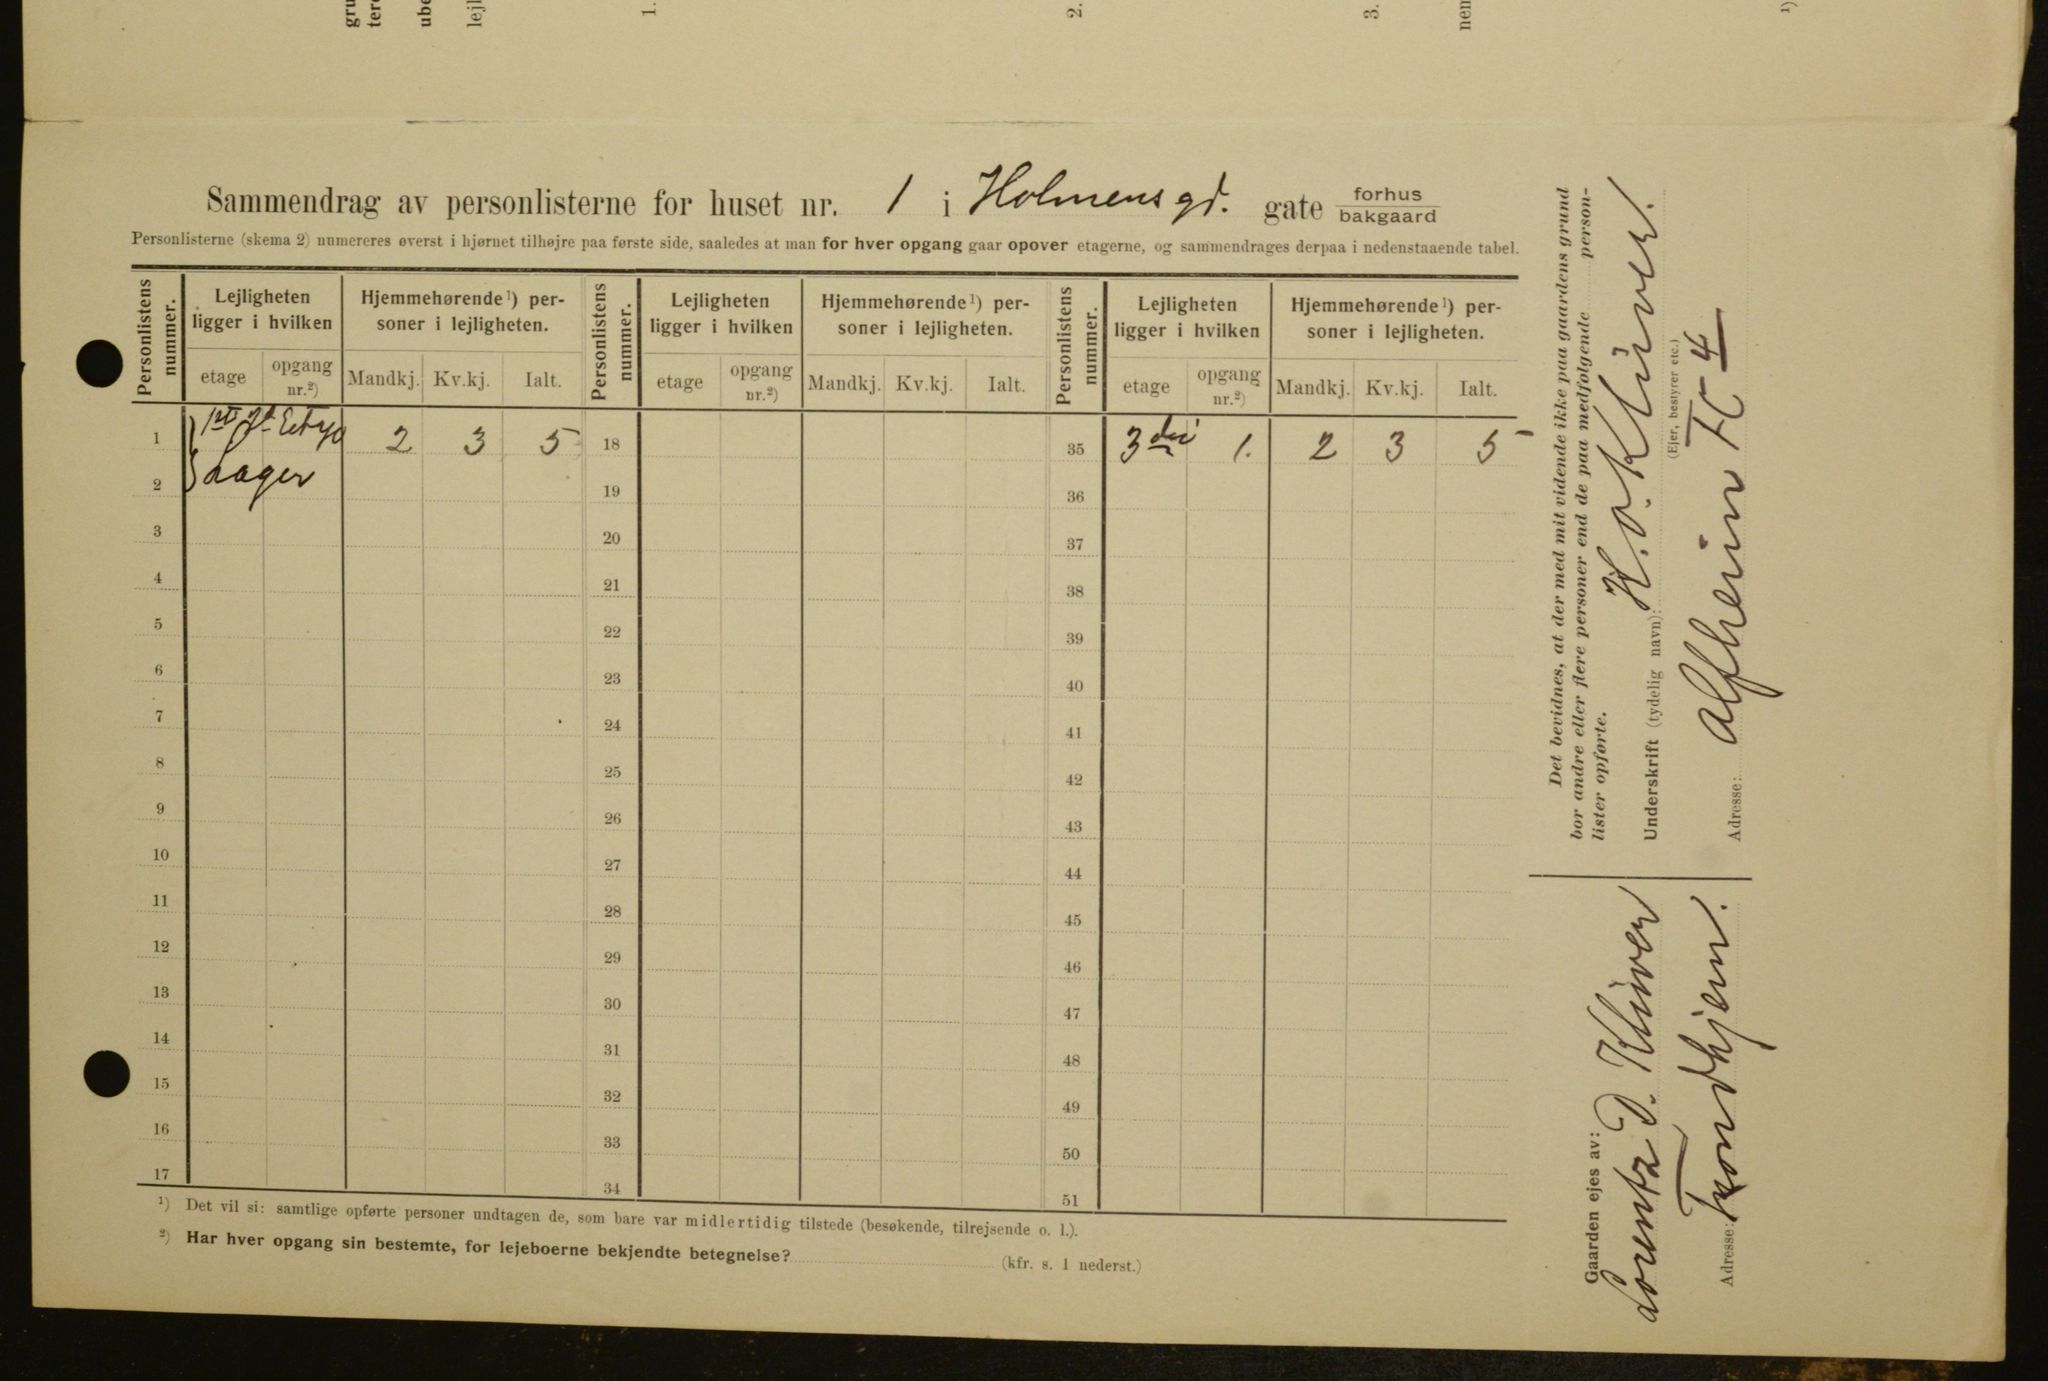 Sammendrag av personlisterne for huset nr. 1 i Holmensgd. gate forhus
bakgaard
Personlisterne (skema 2) numereres øverst i hjørnet tilhøjre paa første side, saaledes at man for hver opgang gaar opover etagerne, og sammendrages derpaa i nedenstaaende tabel.
Personlistens nummer. Lejligheten ligger i hvilken Hjemmehørende¹) personer i lejligheten. Personlistens nummer. Lejligheten ligger i hvilken Hjemmehørende¹) personer i lejligheten. Personlistens nummer. Lejligheten ligger i hvilken Hjemmehørende¹) personer i lejligheten.
etage opgang nr.²) Mandkj. Kv.kj. Ialt. etage opgang nr.²) Mandkj. Kv.kj. Ialt. etage opgang nr.²) Mandkj. Kv.kj. Ialt.
1 1st 2 3 5 18 35 3 1. 2 3 5
2 Lager 19 36
3 20 37
4 21 38
5 22 39
6 23 40
7 24 41
8 25 42
9 26 43
10 27 44
11 28 45
12 29 46
13 30 47
14 31 48
15 32 49
16 33 50
17 34 51
¹) Det vil si: samtlige opførte personer undtagen de, som bare var midlertidig tilstede (besøkende, tilrejsende o. l.).
²) Har hver opgang sin bestemte, for lejeboerne bekjendte betegnelse? (kfr. s. 1 nederst.)
Det bevidnes, at der med mit vidende ikke paa gaardens grund
bor andre eller flere personer end de paa medfølgende person-
lister opførte.
Underskrift (tydelig navn): H. O. Klüwer.
(Ejer, bestyrer etc.)
Adresse: Alfheim TC 4
Gaarden ejes av:
Lorentz D. Klüwer
Adresse: Trondhjem.
1. 2. 3.